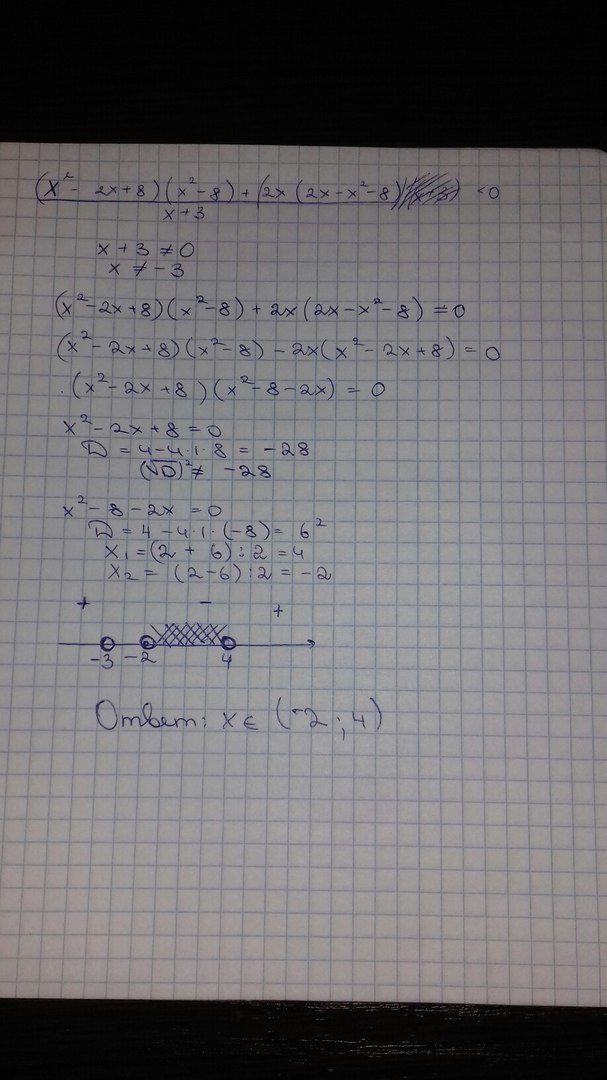 (x² - 2x+8)(x²-8)+(2x(2x-x²-8) <0
x+3
x+3 ≠0
x ≠ -3
(x²-2x+8)(x²-8) + 2x(2x-x²-8) = 0
(x²-2x+8)(x²-8) - 2x(x²-2x+8) = 0
(x²-2x+8)(x²-8-2x) = 0
x²-2x+8=0
D = 4-4·1·8 = -28
(√D)² ≠ -28
x²-8-2x =0
D = 4-4·1·(-8) = 6²
x₁ = (2 + 6):2 = 4
x₂ = (2-6):2 = -2
+ - +
-3 -2 4
Ответ: x ∈ (-2;4)